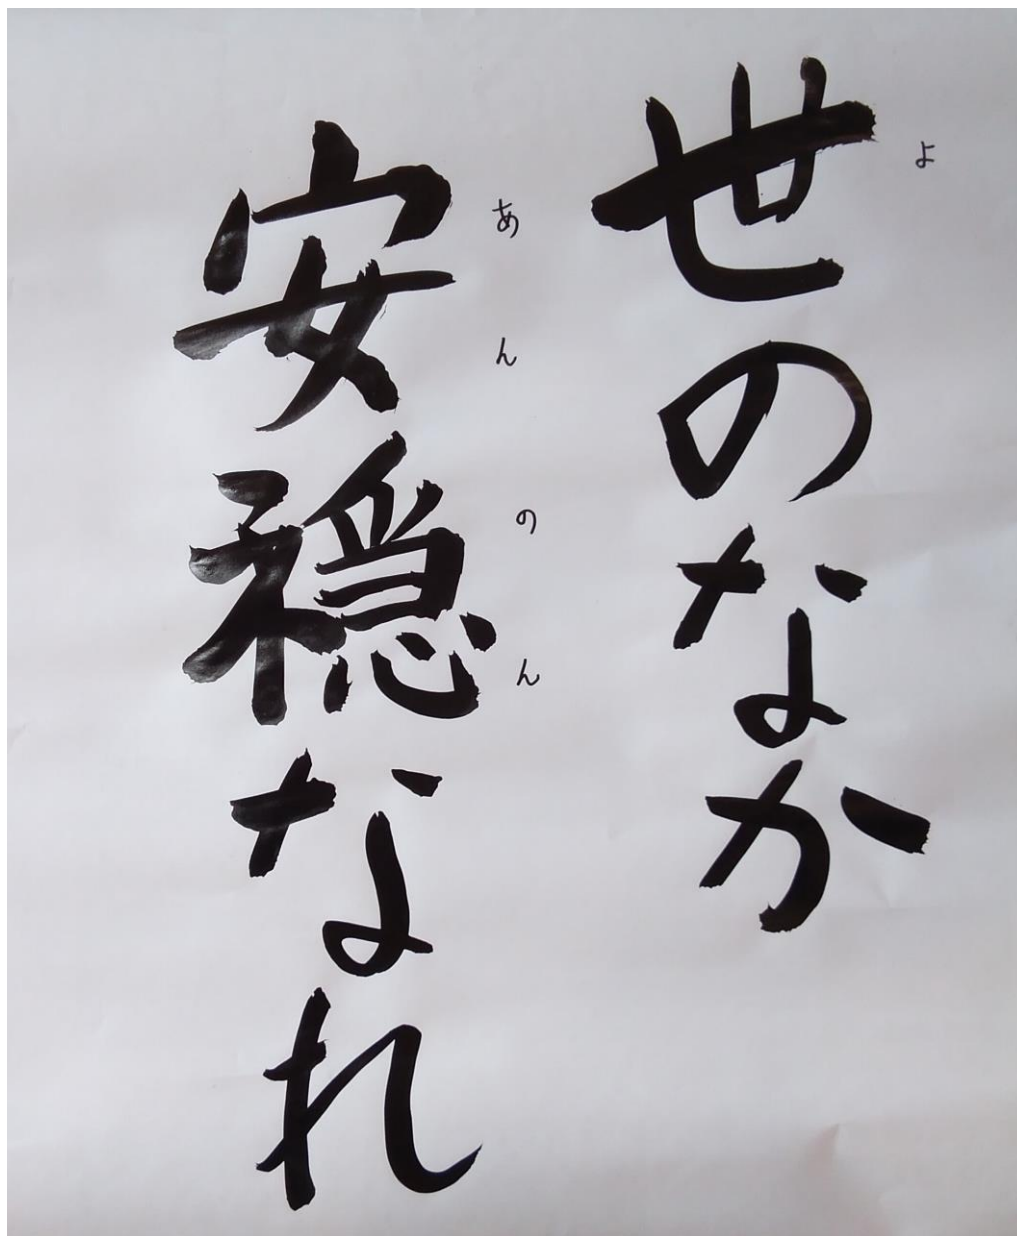 世のなか
よ
安穏なれ
あんのん